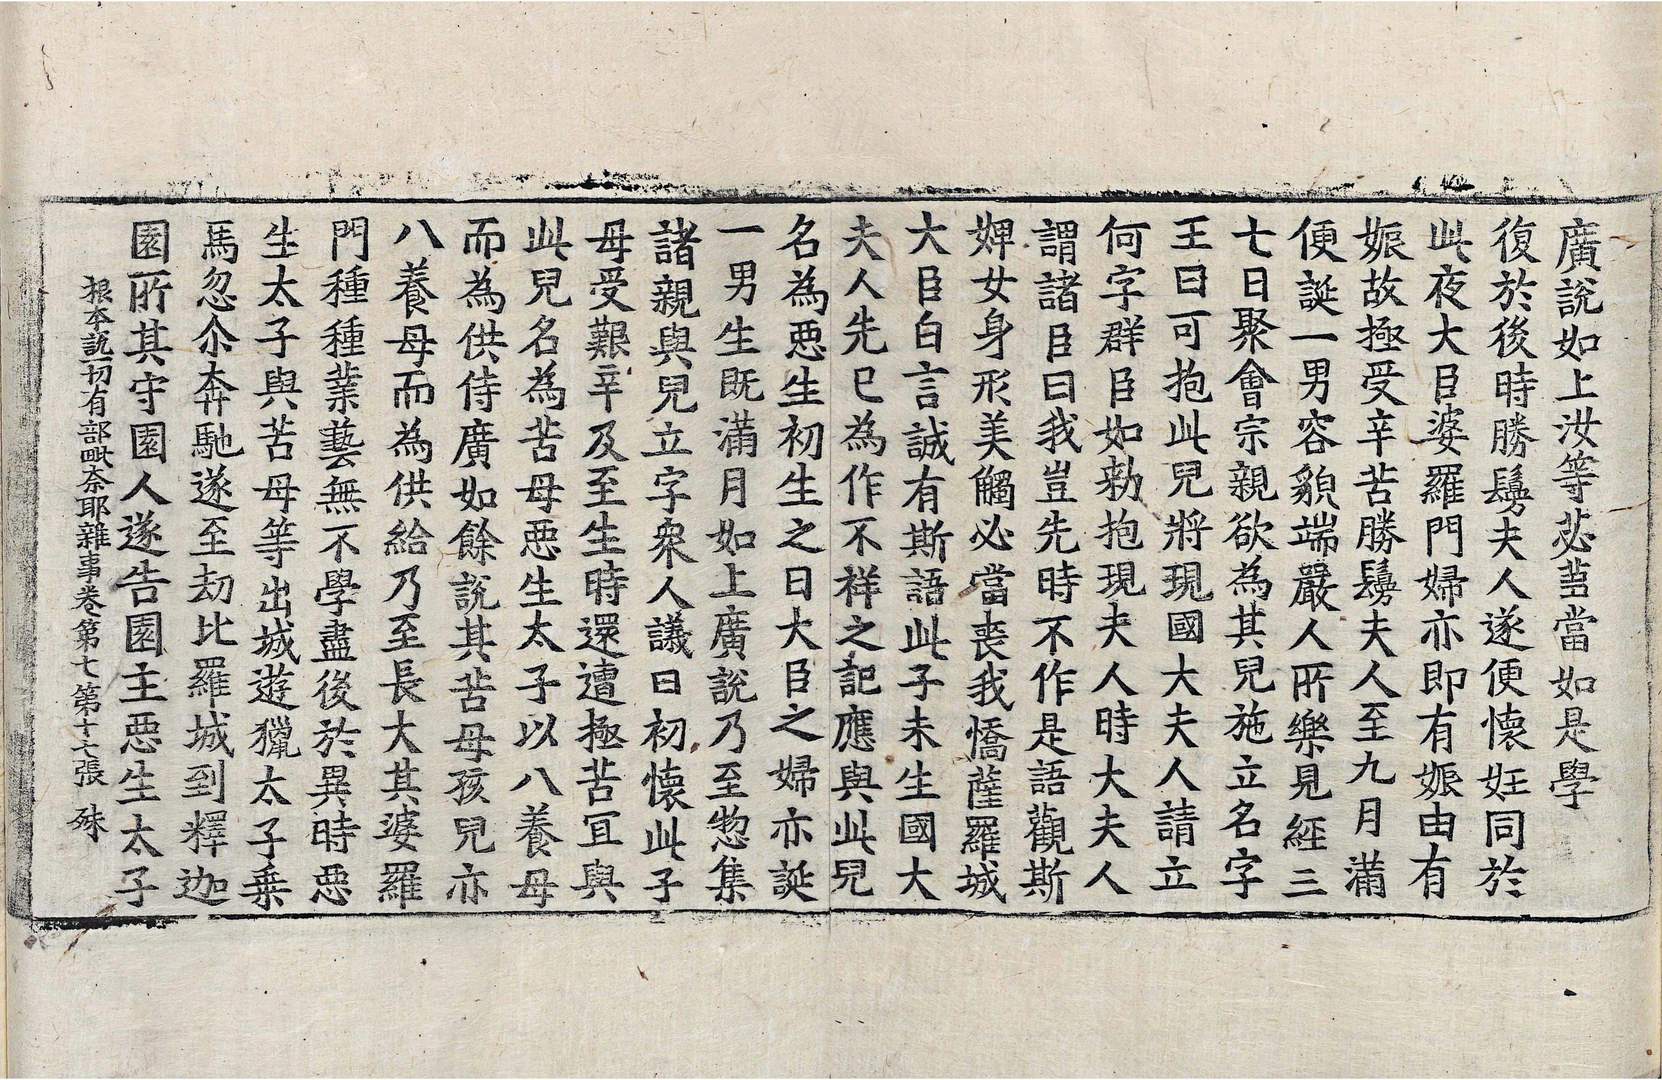 廣說如上汝等苾芻當如是學
復於後時勝鬘夫人遂便懷妊同於
此夜大臣婆羅門婦亦即有娠由有
娠故極受辛苦勝鬘夫人至九月滿
便誕一男容貌端嚴人所樂見經三
七日聚會宗親欲為其兒施立名字
王曰可抱此兒將現國大夫人請立
何字群臣如勑抱現夫人時大夫人
謂諸臣曰我豈先時不作是語觀斯
婢女身形美觸必當喪我憍薩羅城
大臣白言誠有斯語此子未生國大
夫人先已為作不祥之記應與此兒
名為惡生初生之日大臣之婦亦誕
一男生既滿月如上廣說乃至惣集
諸親與兒立字衆人議曰初懷此子
母受艱辛及至生時還遭極苦宜與
此兒名為苦母惡生太子以八養母
而為供侍廣如餘說其苦母孩兒亦
八養母而為供給乃至長大其婆羅
門種種業藝無不學盡後於異時惡
生太子與苦母等出城遊獵太子乘
馬忽尒奔馳遂至劫比羅城到釋迦
園所其守園人遂告園主惡生太子
根本說一切有部毗奈耶雜事卷第七 第十七張 殊